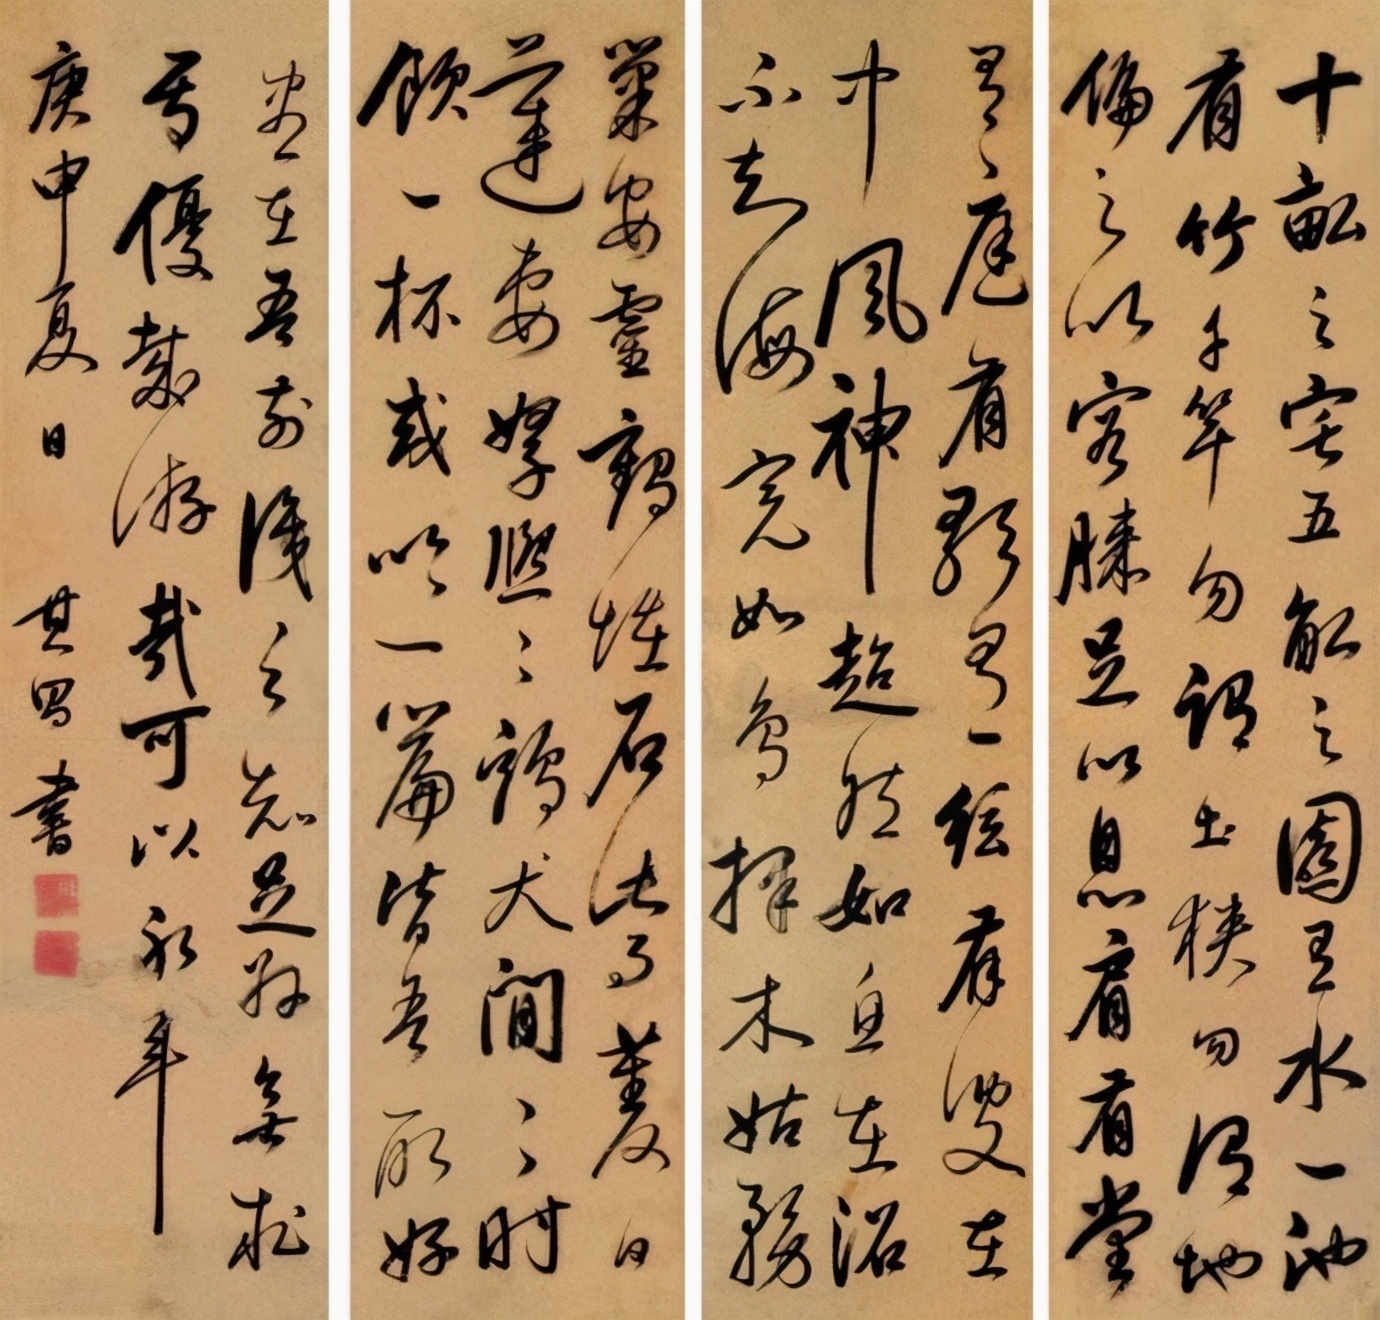 十畝之宅五畝之園有水一池
有竹千竿勿謂土狹勿謂地
偏足以容膝足以息肩有堂
有〻庭有歌有一絃有叟在
中風神超然如龜在沼
不知海寬如鳥擇木姑務
巢安靈鶴怪石紫菱白
蓮妻孥熙〻雞犬閒〻時
飲一杯或吟一篇皆吾所好
盡在吾前識之知足外無求
焉優哉游哉可以永年
庚申夏日 其昌書